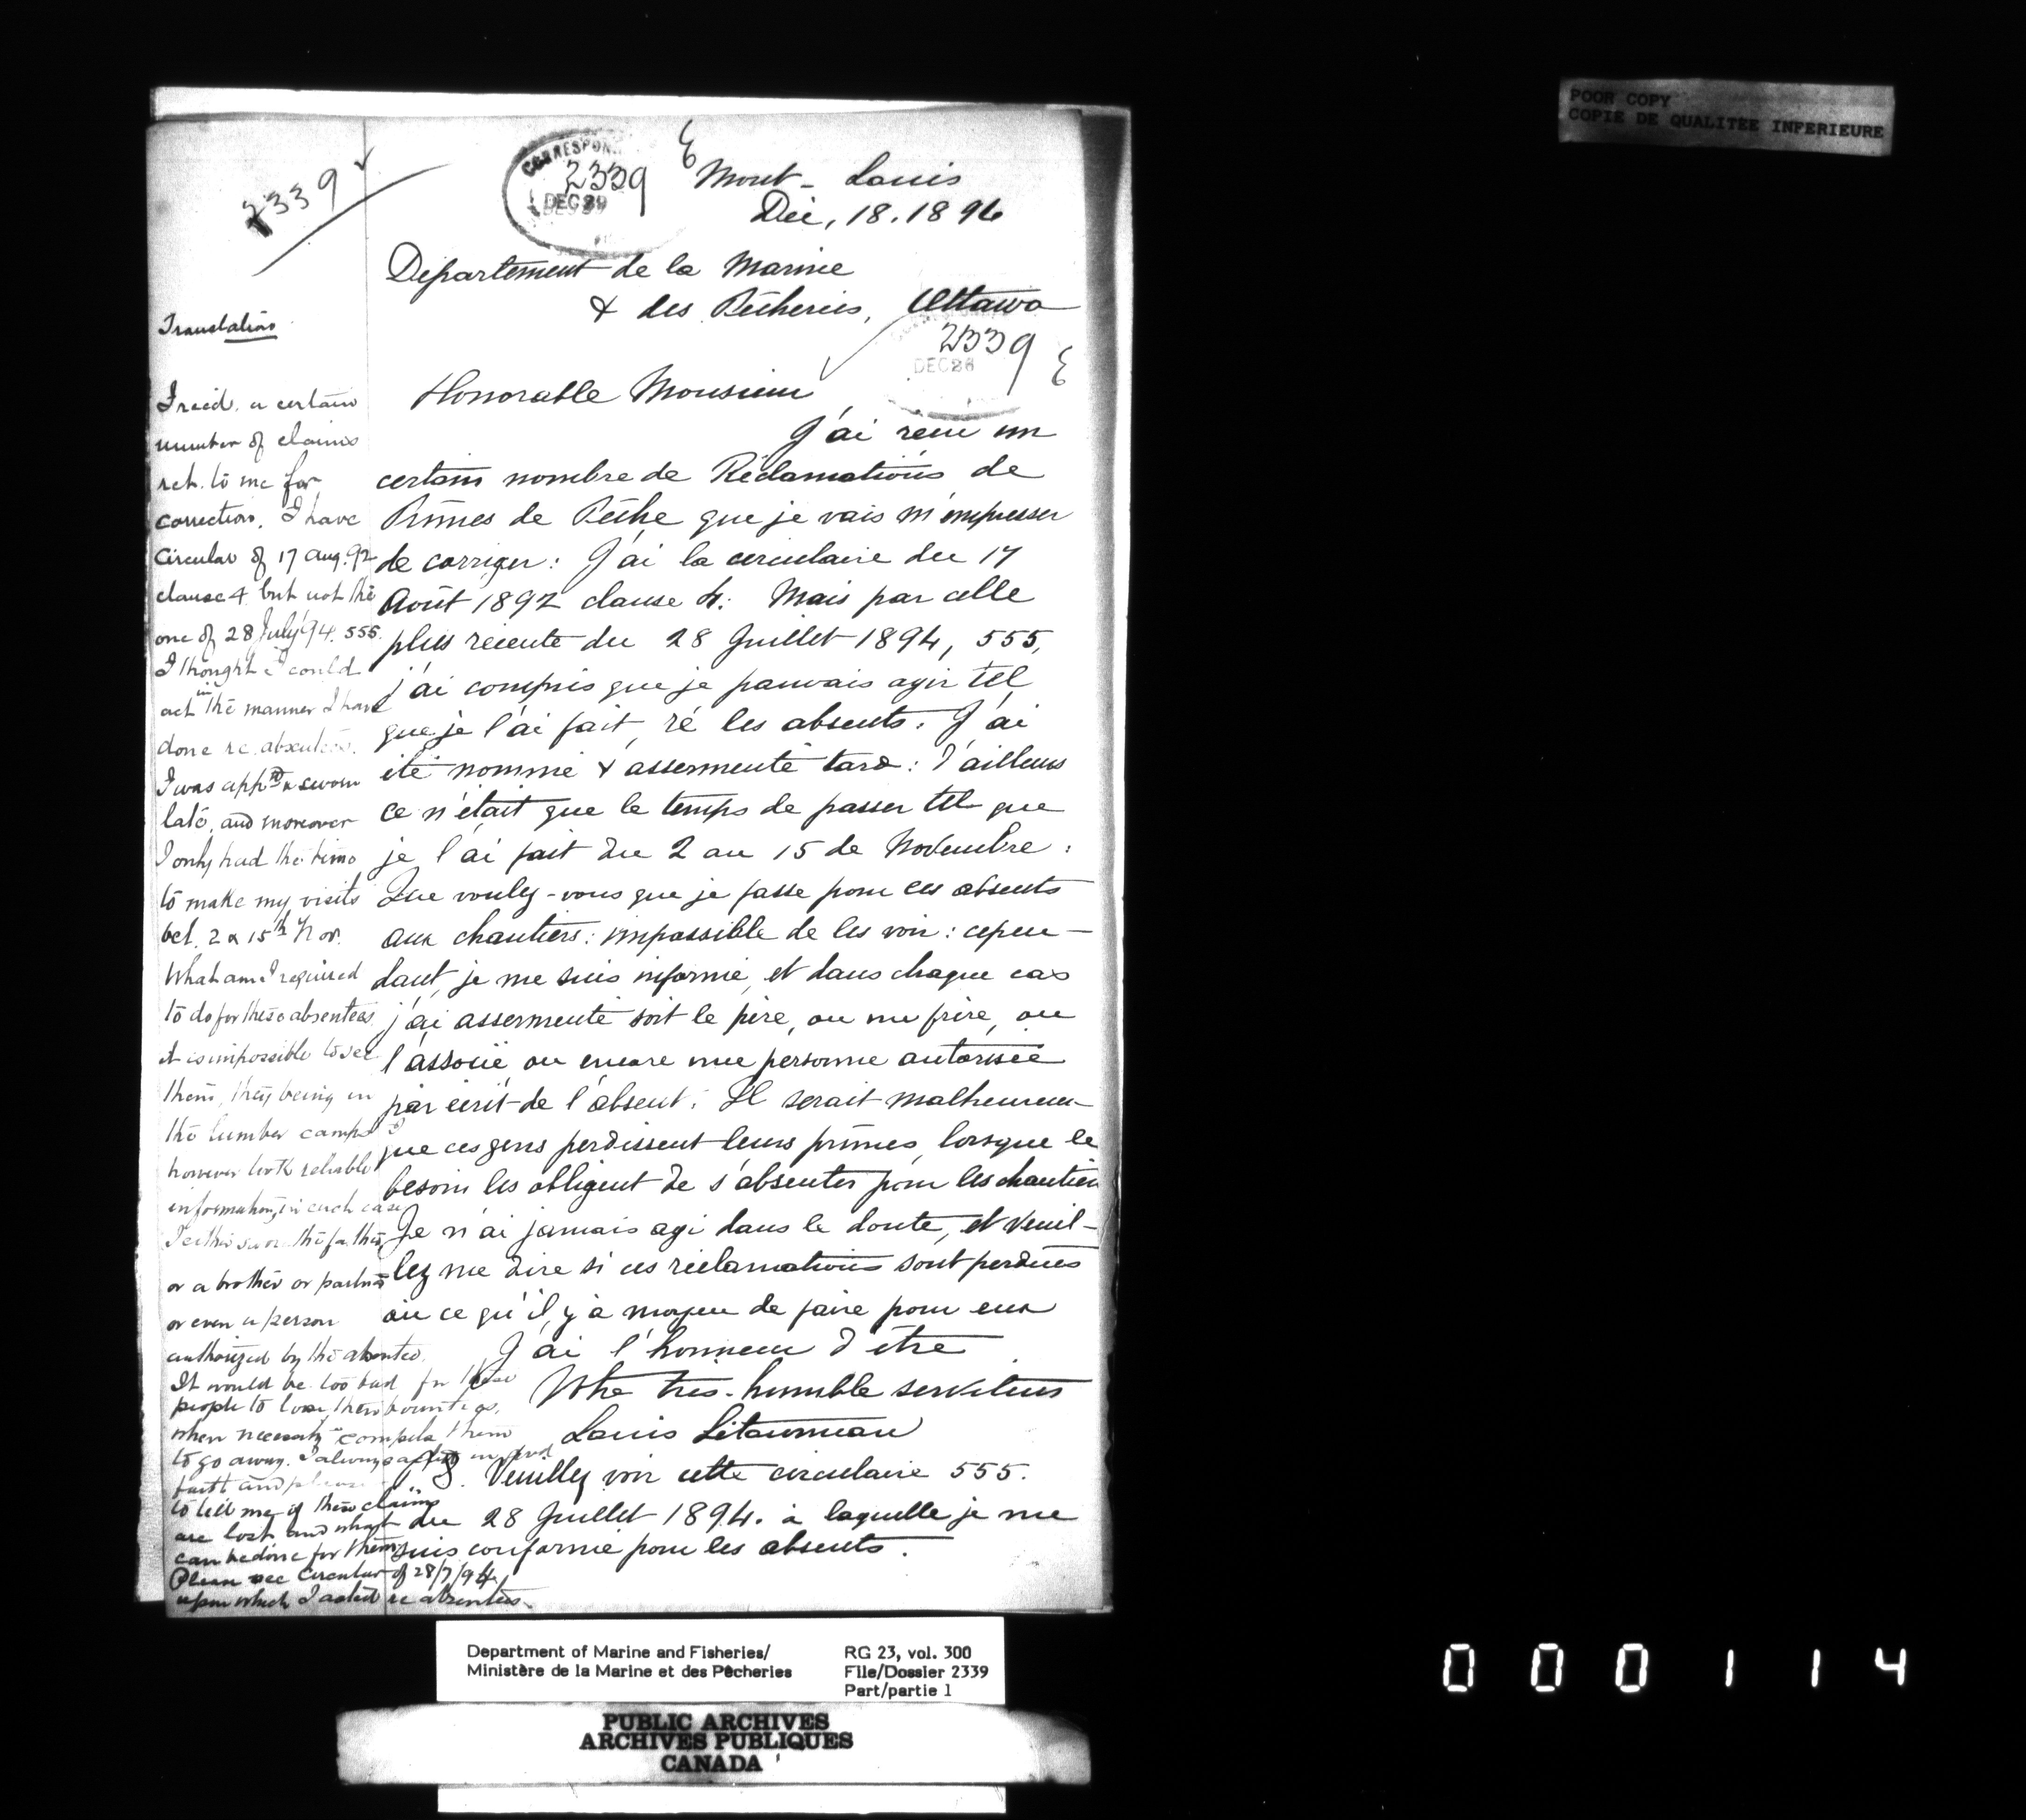 POOR COPY
COPIE DE QUALITEE INFERIEURE
2339
CORRESPON
2339
DEC 29
Mont-Louis
Dec, 18. 1894
Departement de la Marine
& des Pêcheries, Ottawa
2339
DEC 26
Honorable Monsieur
J'ai recu un
certain nombre de Réclamations de
Primes de Pêche que je vais m'empresser
de corriger: J'ai la circulaire du 17
Août 1892 clause 4. Mais par celle
plus récente du 28 Juillet 1894, 555,
j'ai compris que je pouvais agir tel
que je l'ai fait, ré les absents. J'ai
été nommé & assermenté tard: D'ailleurs
ce n'était que le temps de passer tel que
je l'ai fait du 2 au 15 de Novembre:
Que voulez-vous que je fasse pour ces absents
aux chantiers: impossible de les voir: cepen-
dant, je me suis informé, et dans chaque cas
j'ai assermenté soit le père, ou un frère, ou
l'associé, ou encore une personne autorisée
par écrit de l'absent. Il serait malheureux
que ces gens perdissent leurs primes, lorsque le
besoin les obligent de s'absenter pour les chantiers
Je n'ai jamais agi dans le doute, et veuil-
lez me dire si ces réclamations sont perdues
ou ce qu'il y a moyen de faire pour eux
J'ai l'honneur d'être
Votre très-humble serviteur
Louis Létourneau
P.S. Veuillez voir cette circulaire 555.
du 28 Juillet 1894. à laquelle je me
suis conformé pour les absents.
Translation
I recd. a certain
number of claims
ret. to me for
correction. I have
Circular of 17 Aug. 92
clause 4 but not the
one of 28 July 94. 555.
I thought I could
act in the manner I have
done re absentees.
I was appd & sworn
late, and moreover
I only had the time
to make my visits
bet. 2 & 15th Nov.
What am I required
to do for these absentees
it is impossible to see
them, they being in
the lumber camps I
however took reliable
information, in each case
I either swore the father
or a brother or partner
or even a person
authorized by the absentee.
It would be too bad for these
people to lose their bounties,
when necessity compels them
to go away. I always acted in good
faith and please
to tell me if these claims
are lost and what
can be done for them
Please see Circular of 28/7/94
upon which I acted re absentees.
Department of Marine and Fisheries/
Ministère de la Marine et des Pêcheries
RG 23, vol. 300
File/Dossier 2339
Part/partie 1
PUBLIC ARCHIVES
ARCHIVES PUBLIQUES
CANADA
000114